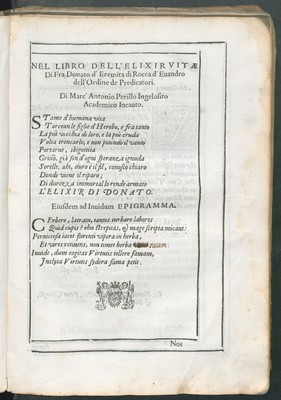 NEL LIBRO DELL'ELIXIR VITÆ
Di Fra Donato d' Eremita di Rocca d' Euandro
dell'Ordine de Predicatori.
Di Marc' Antonio Perillo Ingelosito
Academico Incauto.
STame d'humana vita
Torcean le figlie d'Herebo, e fra tanto
La più vecchia di loro, e la più cruda
Volea troncarlo, e non potendo il vanto
Portarne, sbigotita
Gridò, già son d'ogni speranza ignuda
Sorelle, ahi, duro è il fil, conosco chiaro
Donde viene il riparo,
Di durezza immortal lo rende armato
L'ELIXIR DI DONATO.
Eiusdem ad Inuidum EPIGRAMMA.
CErbere, latratu, tantos turbare labores
Quid cupis? eheu strepitas, & mage scripta micant:
Perniciosa iacet florenti vipera in herba,
Et vires retinens, non timet herba
Inuide, dum cogitas Virtutis tollere famam,
Inclyta Virtutis sydera fama petit.
Nos